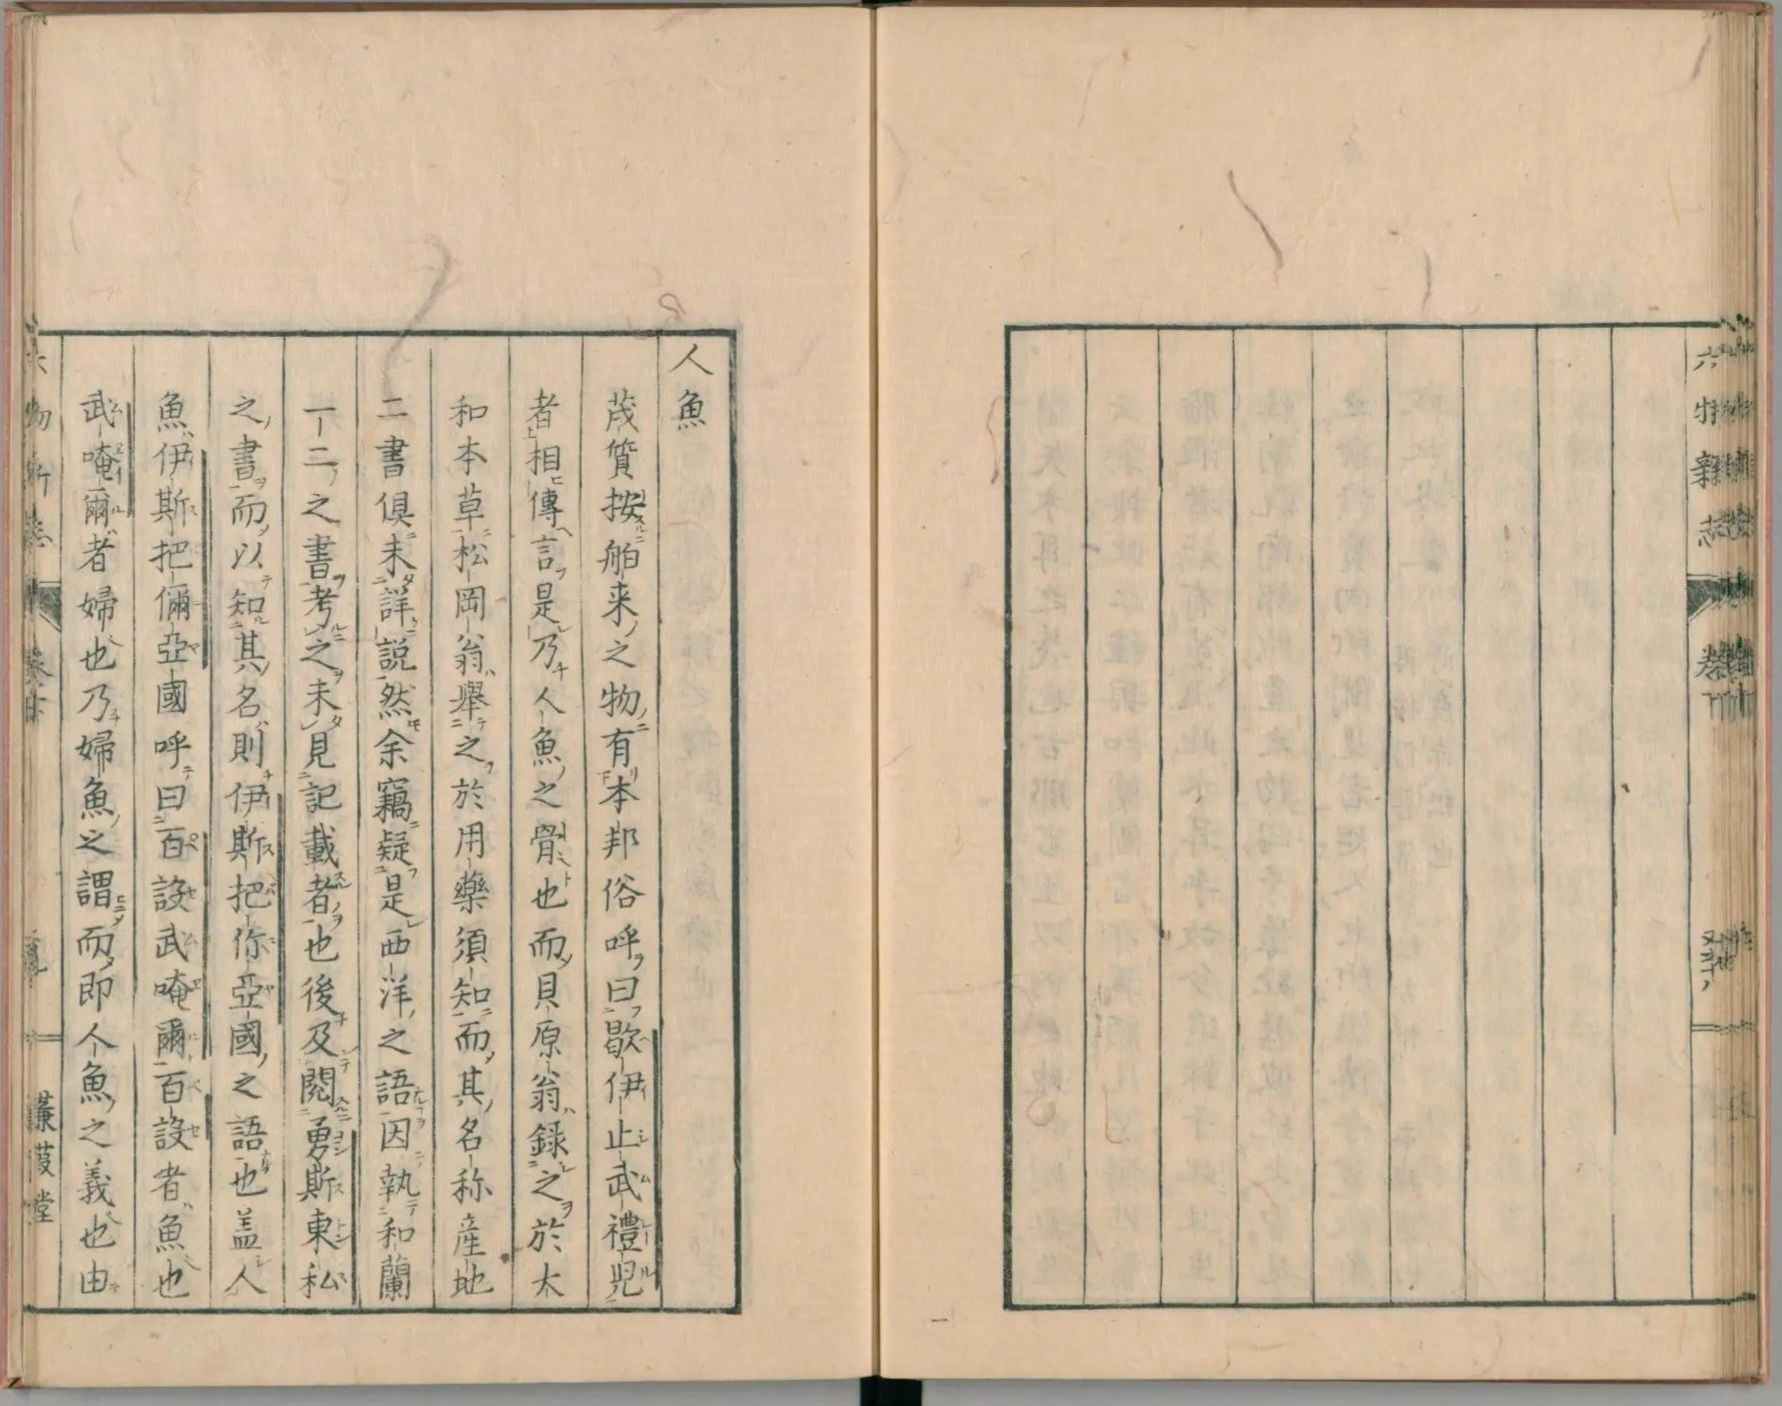 六物新志 卷下
人魚
茂質按舶来之物有本邦俗呼曰歇伊止武禮児
者相傳言是乃人魚之骨也而貝原翁録之於大
和本草松岡翁舉之於用藥須知而其名称産地
二書俱未詳說然余竊疑是西洋之語因執和蘭
一二之書考之未見記載者也後及閲勇斯東私
之書而以知其名則伊斯把你亞國之語也盖人
魚伊斯把儞亞國呼曰百設武唵爾百設者魚也
武唵爾者婦也乃婦魚之謂而即人魚之義也由
六物新志 卷下
蒹葭堂